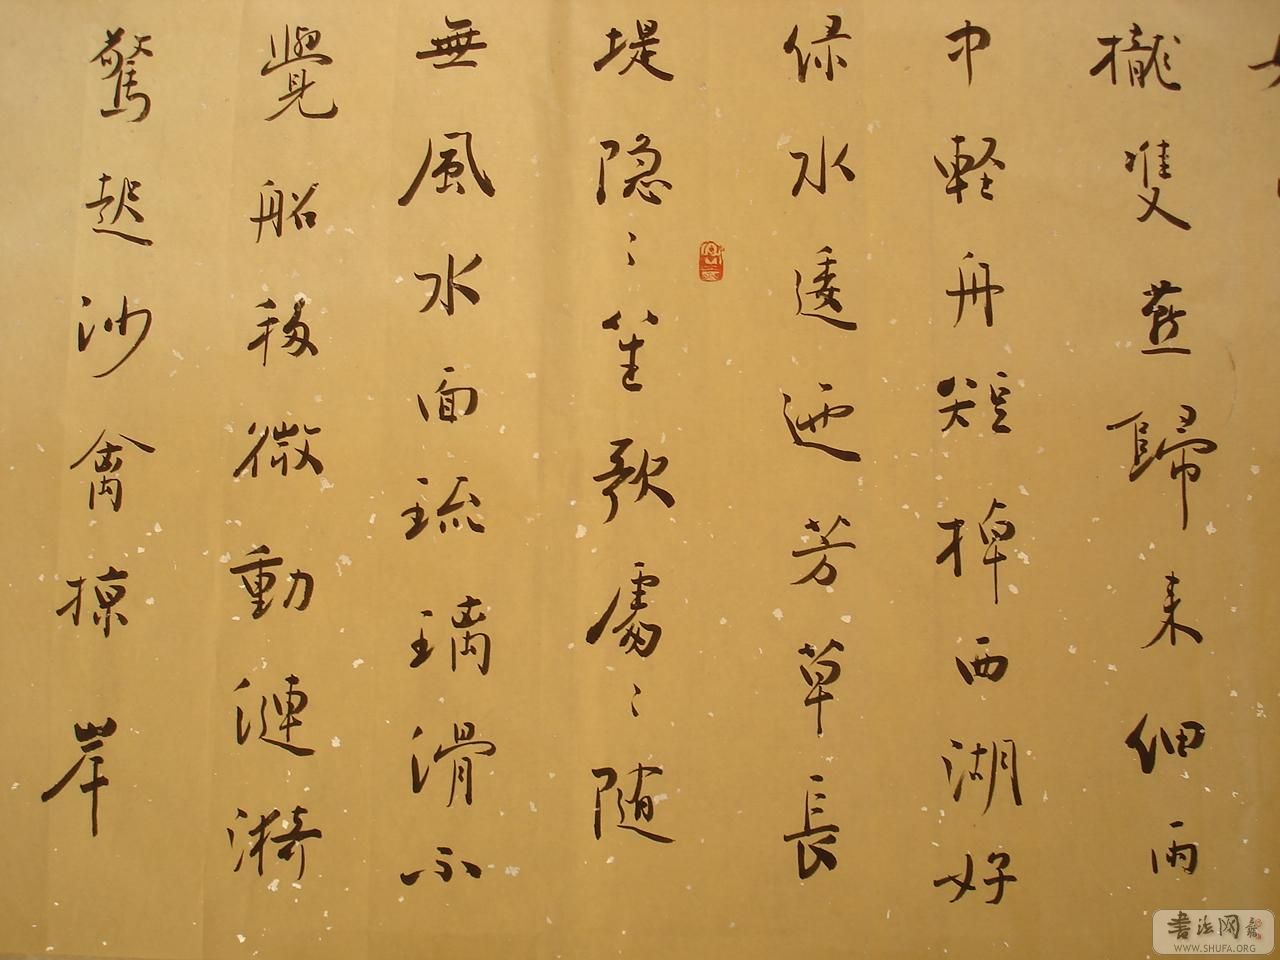 櫳雙燕歸来細雨
中軽舟短棹西湖好
緑水逶迤芳草長
堤隐〻笙歌處〻随
無風水面琉璃滑不
覺船移微動漣漪
驚起沙禽掠岸
書法网
WWW.SHUFA.ORG